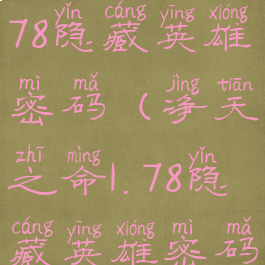 yǐn cáng yīng xióng
78隐藏英雄
mì mǎ jìng tiān
密码(净天
zhī mìng yǐn
之命1.78隐
cáng yīng xióng mì mǎ
藏英雄密码